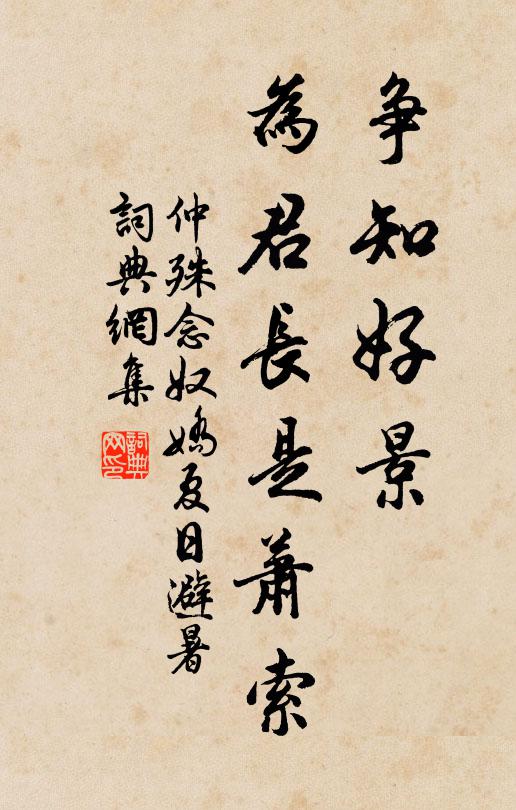 爭知好景
為君長是蕭索
仲殊念奴嬌夏日避暑
詞典網集
詞典網印